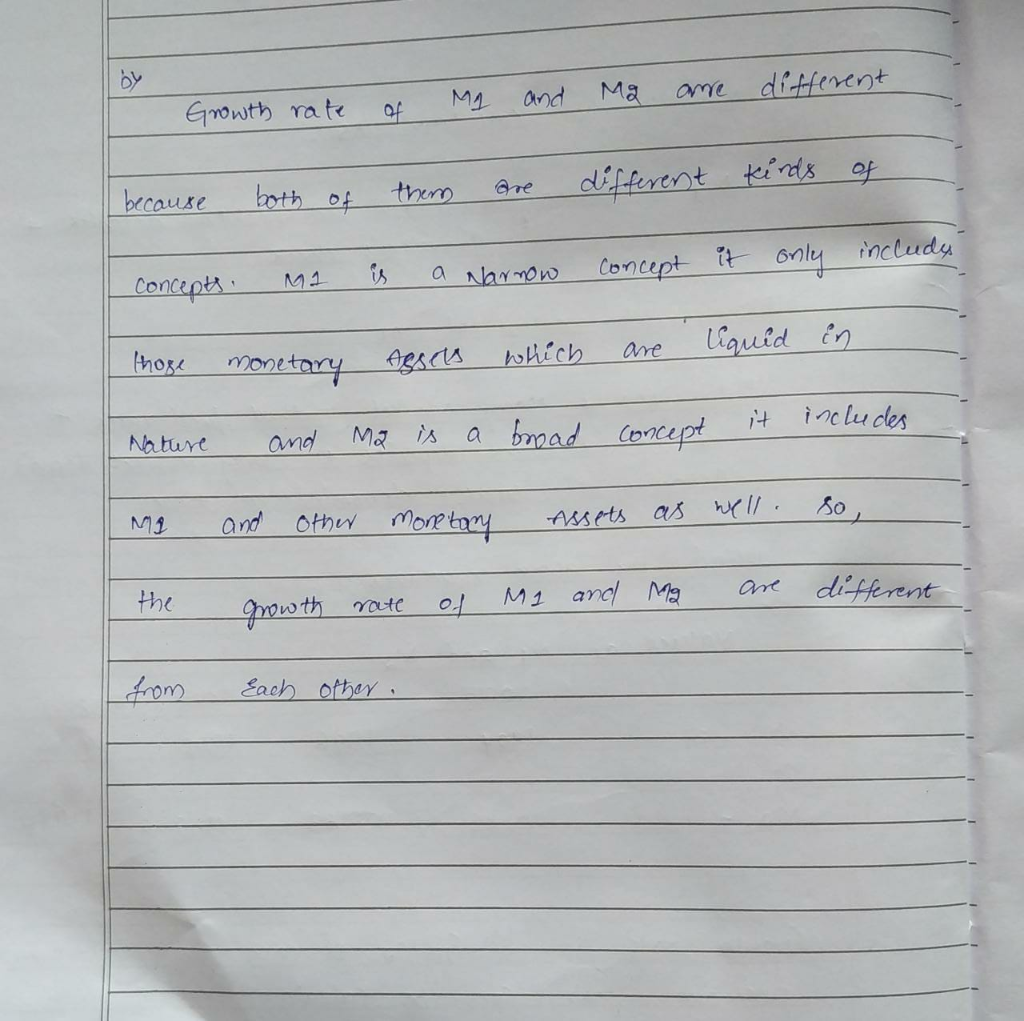 by
Growth rate of M1 and M2 are different
because both of them are different kinds of
concepts. M1 is a Narrow concept it only includes
those monetary Assets which are liquid in
Nature and M2 is a broad concept it includes
M1 and other monetary Assets as well. So,
the growth rate of M1 and M2 are different
from Each other.